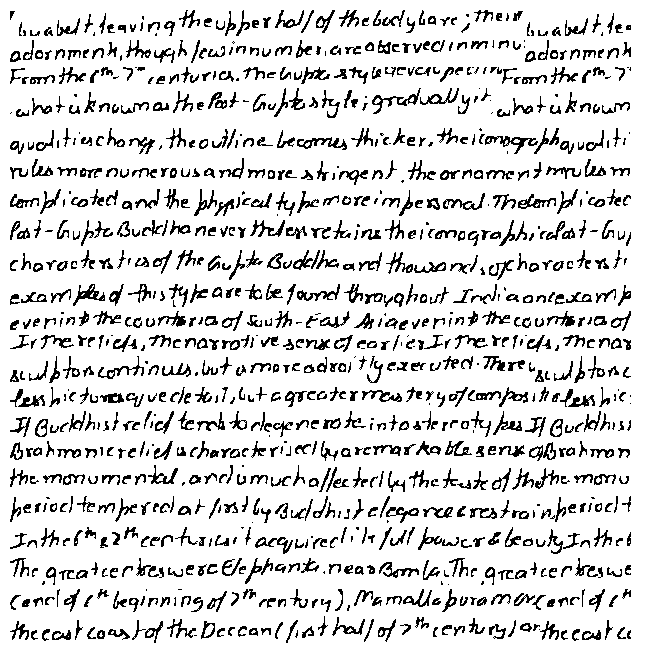 by a belt, leaving the upper half of the body bare; their by a belt, lea
adornment, though few in number, are observed in minu adornment
From the 6th-7th centuries, the Gupta style develoved into From the 6th-7
what is known as the Post-Gupta style; gradually it what is known
qualities change, the outline becomes thicker, the iconograph qualiti
rules more numerous and more stringent, the ornament m rules m
complicated and the physical type more impersonal. The complicated
Post-Gupta Buddha never the less retains the iconographical Post-Gup
characteristics of the Gupta Buddha and thousands of characteristi
examples of this type are to be found throughout India and examp
even in the countries of South-East Asia even in the countries of
In the reliefs, the narrative sense of earlier In the reliefs, the nar
sculptors continues, but a more adroitly executed. There sculptors c
less picturesque detail, but a greater mastery of compositio less pic
If Buddhist relief tends to degenerate into stereotypes If Buddhis
Brahmanic relief is characterised by a remarkable sense of Brahman
the monumental, and is much affected by the taste of the the monu
period tempered at first by Buddhist elegance & restrain period t
In the 6th & 7th centuries it acquired its full power & beauty In the 6
The great centres were Elephanta, near Bombay The great centres we
(end of 6th beginning of 7th century), Mamallapuram on (end of 6th
the east coast of the Deccan (first half of 7th century) or the east co